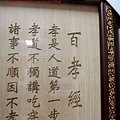 百孝經
孝是人道第一步
孝道不獨講吃穿
諸事不順因不孝